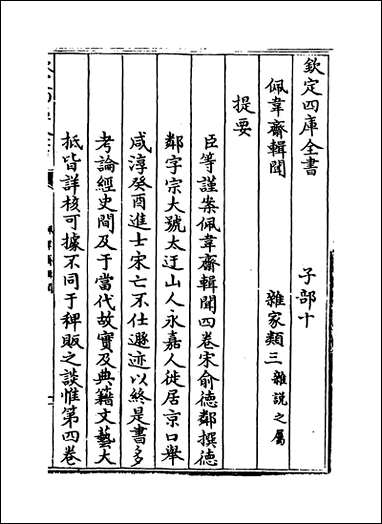 欽定四庫全書 子部十
佩韋齋輯聞 雜家類三 雜說之屬
提要
臣等謹案佩韋齋輯聞四卷宋俞德鄰撰德
鄰字宗大號太迂山人永嘉人徙居京口舉
咸淳癸酉進士宋亡不仕遯迹以終是書多
考論經史間及于當代故實及典籍文藝大
抵皆詳核可據不同于稗販之談惟第四卷